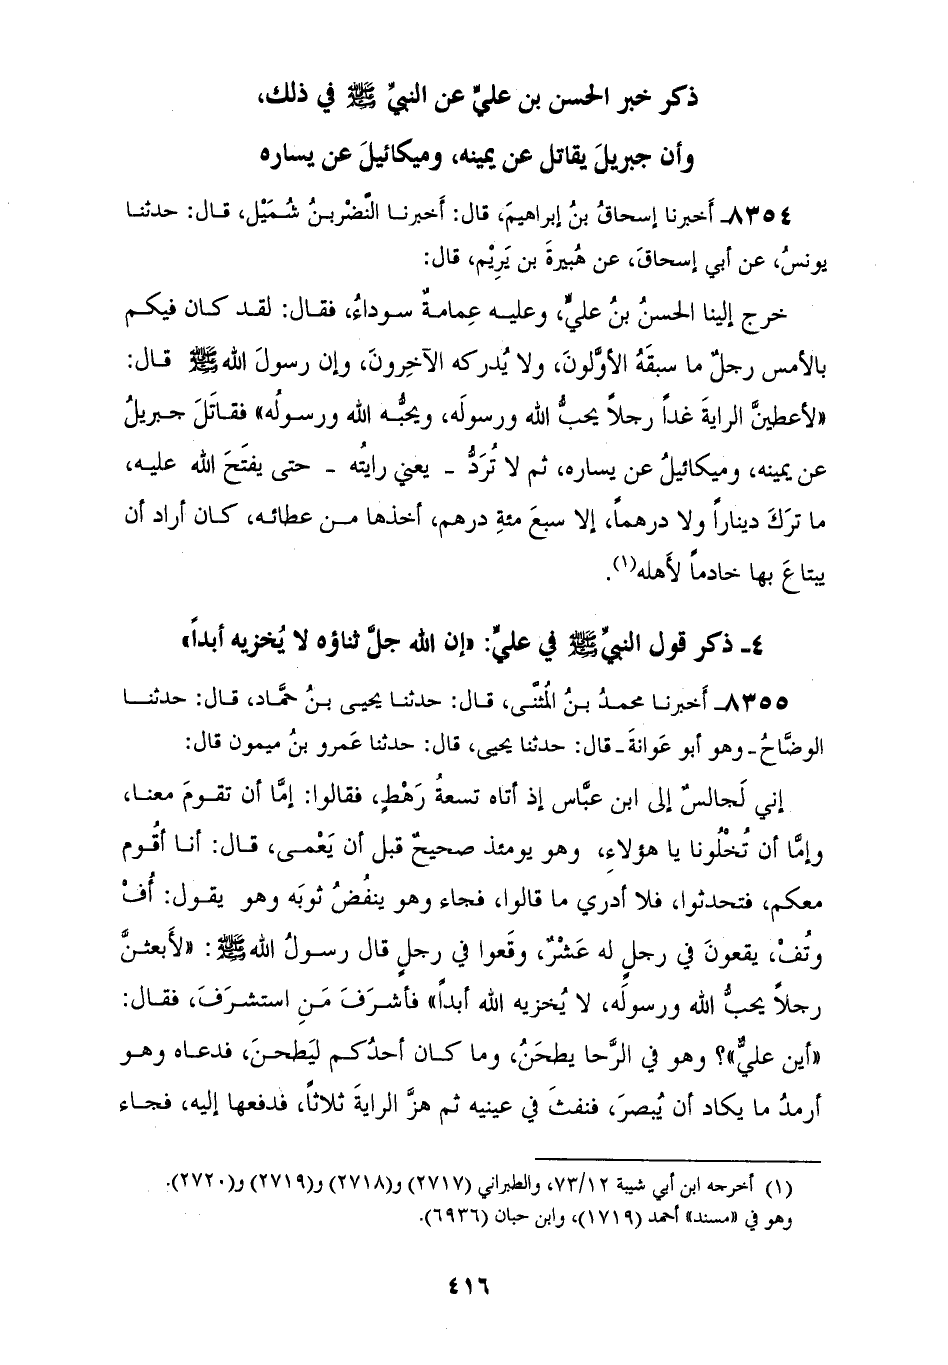 ذكر خبر الحسن بن عليٍّ عن النبيِّ ﷺ في ذلك،
وأن جبريلَ يقاتل عن يمينه، وميكائيلَ عن يساره
٨٣٥٤ـ أخبرنا إسحاقُ بنُ إبراهيمَ، قال: أخبرنا النَّضْر بنُ شُمَيْل، قال: حدثنا
يونسُ، عن أبي إسحاقَ، عن هُبيرةَ بن يَرِيْم، قال:
خرج إلينا الحسنُ بنُ عليٍّ، وعليه عِمامةٌ سوداءُ، فقال: لقد كان فيكم
بالأمس رجلٌ ما سبقَهُ الأوَّلونَ، ولا يُدركه الآخِرونَ، وإن رسولَ الله ﷺ قال:
«لأعطينَّ الرايةَ غداً رجلاً يحبُّ اللهَ ورسولَه، ويحبُّه الله ورسولُه» فقاتَلَ جبريلُ
عن يمينه، وميكائيلُ عن يساره، ثم لا تُرَدُّ - يعني رايتُه - حتى يفتَحَ الله عليه،
ما ترَكَ ديناراً ولا درهماً، إلا سبعَ مئةِ درهم، أخذها من عطائه، كان أراد أن
يبتاعَ بها خادماً لأهله(١).
٤ـ ذكر قول النبيِّ ﷺ في عليٍّ: «إن الله جلَّ ثناؤه لا يُخزيه أبداً»
٨٣٥٥ـ أخبرنا محمدُ بنُ المُثنَّى، قال: حدثنا يحيى بنُ حمَّاد، قال: حدثنا
الوضَّاحُ ـ وهو أبو عوانةَ ـ قال: حدثنا يحيى، قال: حدثنا عَمرو بنُ ميمون قال:
إني لَجالسٌ إلى ابن عبَّاس إذ أتاه تسعةُ رَهْطٍ، فقالوا: إمَّا أن تقومَ معنا،
وإمَّا أن تُخْلُونا يا هؤلاءِ، وهو يومئذ صحيحٌ قبل أن يَعْمى، قال: أنا أقُوم
معكم، فتحدثوا، فلا أدري ما قالوا، فجاء وهو ينفُضُ ثوبَه وهو يقول: أُفْ
وتُفْ، يقعونَ في رجلٍ له عَشْرٌ، وقَعوا في رجلٍ قال رسولُ الله ﷺ: «لأَبعثنَّ
رجلاً يحبُّ الله ورسولَه، لا يُخزيه الله أبداً» فأشرَفَ مَنِ استشرَفَ، فقال:
«أين عليٌّ»؟ وهو في الرَّحا يطحَنُ، وما كان أحدُكم ليَطحنَ، فدعاه وهو
أرمدُ ما يكاد أن يُبصرَ، فنفثَ في عينيه ثم هزَّ الرايةَ ثلاثاً، فدفعها إليه، فجاء
(١) أخرجه ابن أبي شيبة ٧٣/١٢، والطبراني (٢٧١٧) و(٢٧١٨) و(٢٧١٩) و(٢٧٢٠).
وهو في «مسند» أحمد (١٧١٩)، وابن حبان (٦٩٣٦).
٤١٦